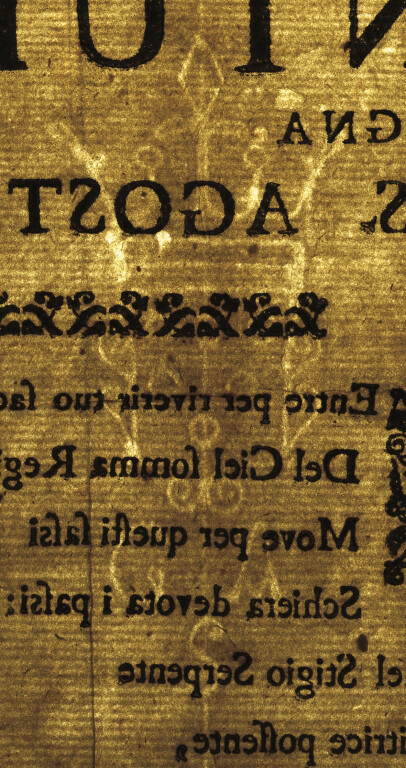 GNA
S. AGOST
Entre per riverir tuo ſac
Del Ciel ſomma Regi
Move per queſti ſaſsi
Schiera devota i paſsi:
el Stigio Serpente
itrice poſſente,